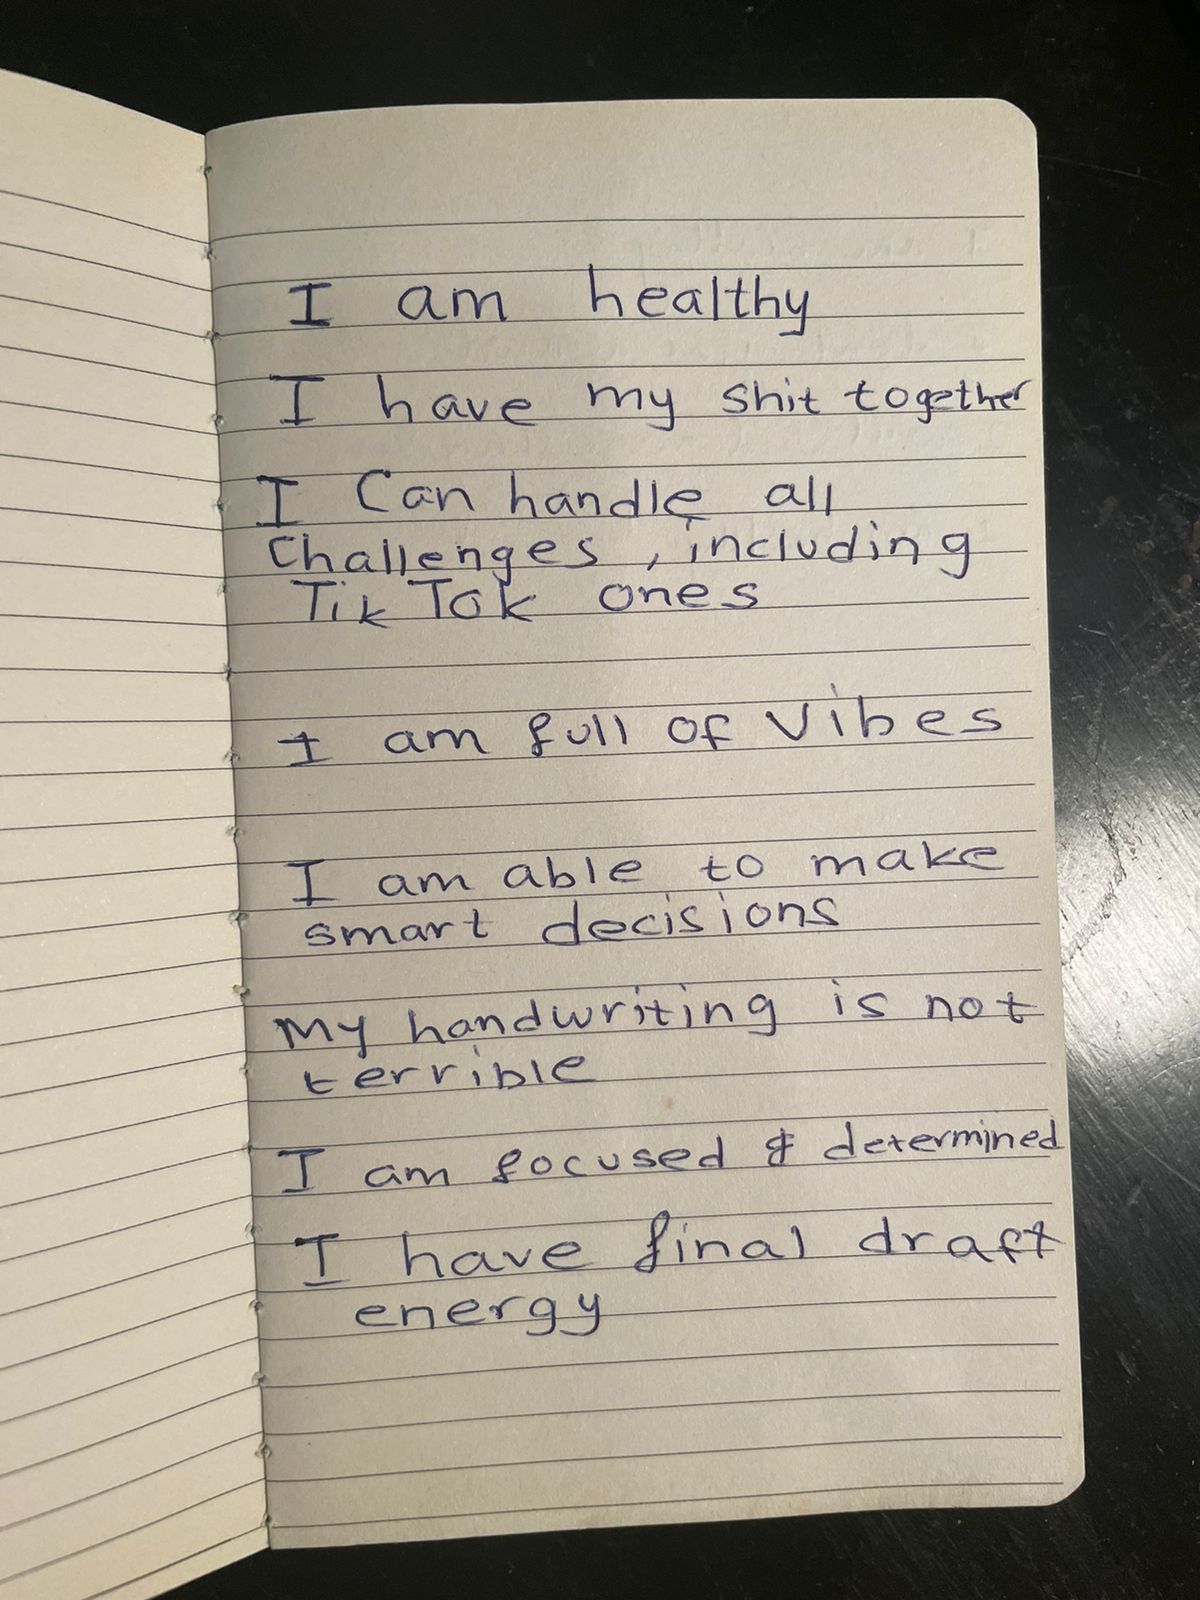 I am healthy
I have my shit together
I Can handle all
Challenges, including
TikTok ones
I am full of Vibes
I am able to make
smart decisions
My handwriting is not
terrible
I am focused & determined
I have final draft
energy